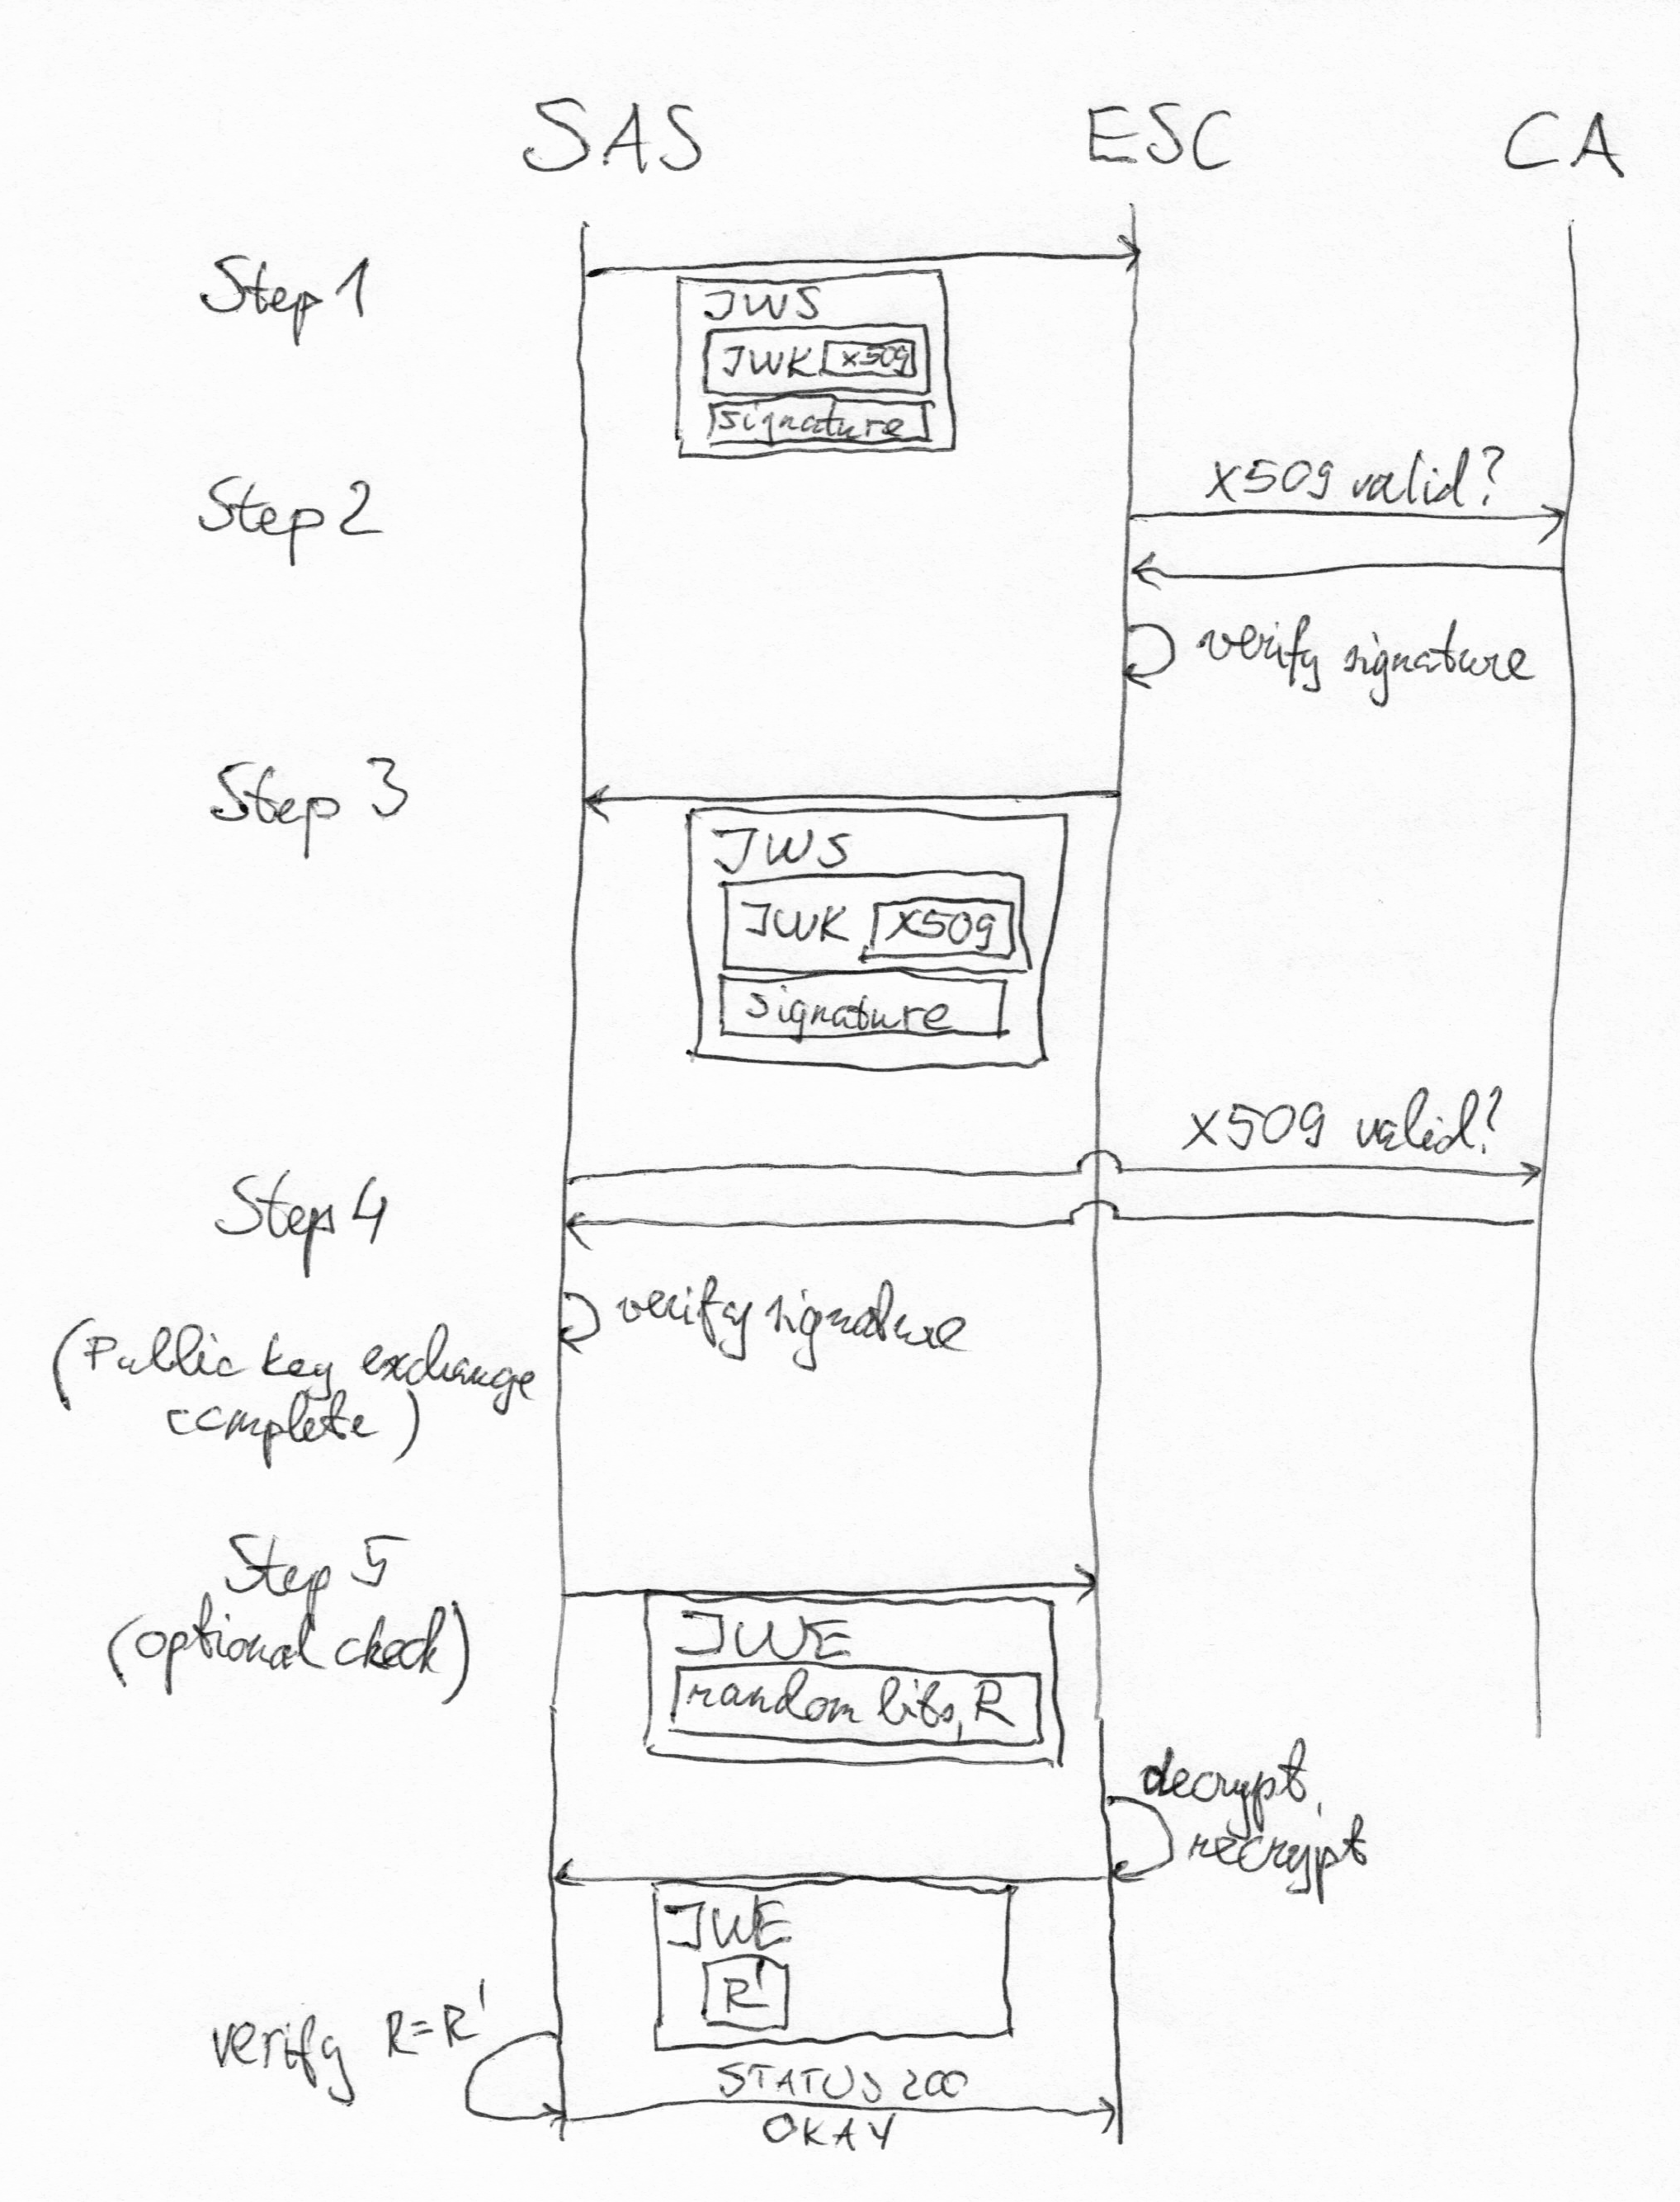 SAS ESC CA
Step 1
JWS
JWK x509
signature
Step 2
x509 valid?
verify signature
Step 3
JWS
JWK x509
signature
x509 valid?
Step 4
verify signature
(Public key exchange
complete)
Step 5
(optional check)
JWE
random bits, R
decrypt,
recrypt
JWE
R'
verify R=R'
STATUS 200
OKAY